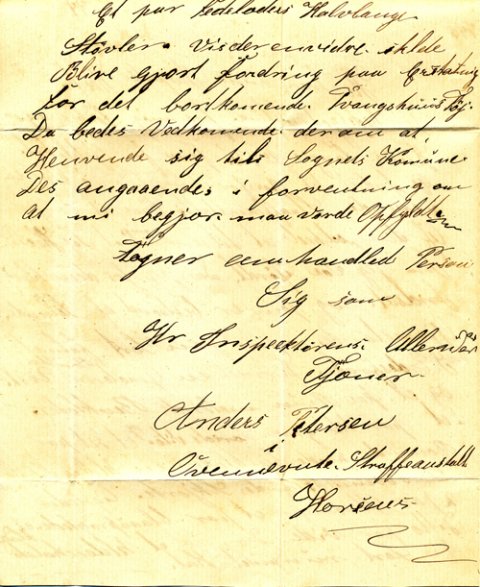 Et par Fedeladers Halvlange
Støvler. Vis der envidre skulde
Blive gjort Fordring paa Erstatning
for det bortkomende Tvangshuus Tøj.
Da bedes Vedkomende derom at
Henvende sig til Sognets Komune
Des angaaendes i forventning om
at mi begjør maa vorde Opfyldt
Tegner omhandled Person
Sig som
Hr Inspektørens
Tjener
Anders Petersen
i
Ovennevnte Straffeanstalt
Horsens